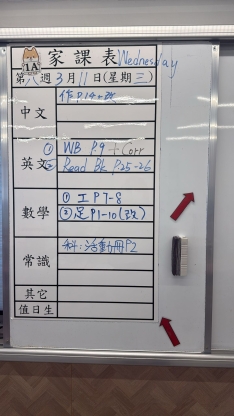 1A 家課表 Wednesday
第八週3月11日(星期三)
中文 作P.14+改
英文 ① WB P.9 + Corr
② Read Bk P.25-26
數學 ① 工P7-8
② 足P1-10(改)
常識 科:活動冊P2
其它
值日生